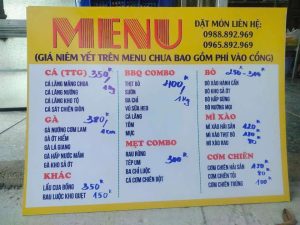 MENU
ĐẶT MÓN LIÊN HỆ:
0988.892.969
0965.892.969
(GIÁ NIÊM YẾT TRÊN MENU CHƯA BAO GỒM PHÍ VÀO CỔNG)
CÁ (TTG) 350K
CÁ LĂNG MĂNG CHUA
CÁ LĂNG NƯỚNG
CÁ LĂNG KHO TỘ
CÁ SÁT CHIÊN GIÒN
GÀ 380/
GÀ NƯỚNG CƠM LAM
GÀ ỚT HIỂM
GÀ LÁ GIANG
GÀ HẤP NƯỚC MẮM
GÀ KHO SẢ ỚT
KHÁC
LẨU CUA ĐỒNG 350K
RAU LUỘC KHO QUẸT 150K
BBQ COMBO
THỊT BÒ
SƯỜN
BA CHỈ
VÚ SỮA HEO
CÀ LĂNG
TÔM
MỰC
MẸT COMBO
RAU RỪNG
TÉP UM 300K
BA CHỈ LUỘC
CÁ CƠM CHIÊN BỘT
BÒ
BÒ XÀO HÀNH CẦN
BÒ KHO SẢ ỚT
BÒ HẤP RỪNG
BÒ NƯỚNG MỌI
MÌ XÀO
MÌ XÀO HẢI SẢN 120K
MÌ XÀO BÒ 120K
MÌ XÀO RAU 80K
CƠM CHIÊN
CƠM CHIÊN HẢI SẢN 120K
CƠM CHIÊN TỎI 80K
CƠM CHIÊN TRỨNG 100K